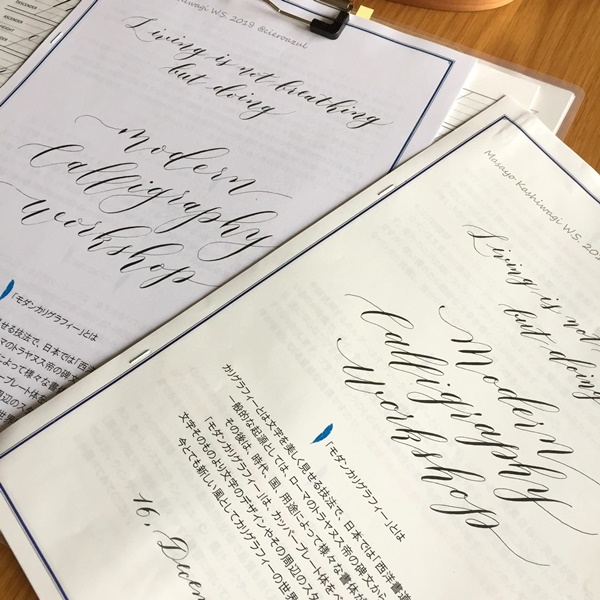 DESCENDER
ASCENDER
WS. 2019 @cieroazul
Living is not breathing
but doing
modern
Calligraphy
workshop
「モダンカリグラフィー」とは
せる技法で、日本では「西洋
によって様々な書体
ープレート体を
周辺のス
Masayo Kashiwagi WS. 201
Living is not
but doing
Modern
Calligraphy
Workshop
「モダンカリグラフィー」とは
カリグラフィーとは文字を美しく見せる技法で、日本では「西洋書道
一般的な起源としては、ローマのトラヤヌス帝の碑文から
その後は、時代、国、用途によって様々な書体が
「モダンカリグラフィー」は、カッパープレート体をベ
文字そのものより文字のデザインやその周辺のスタ
今とても新しい風としてカリグラフィーの世界
16, Decem